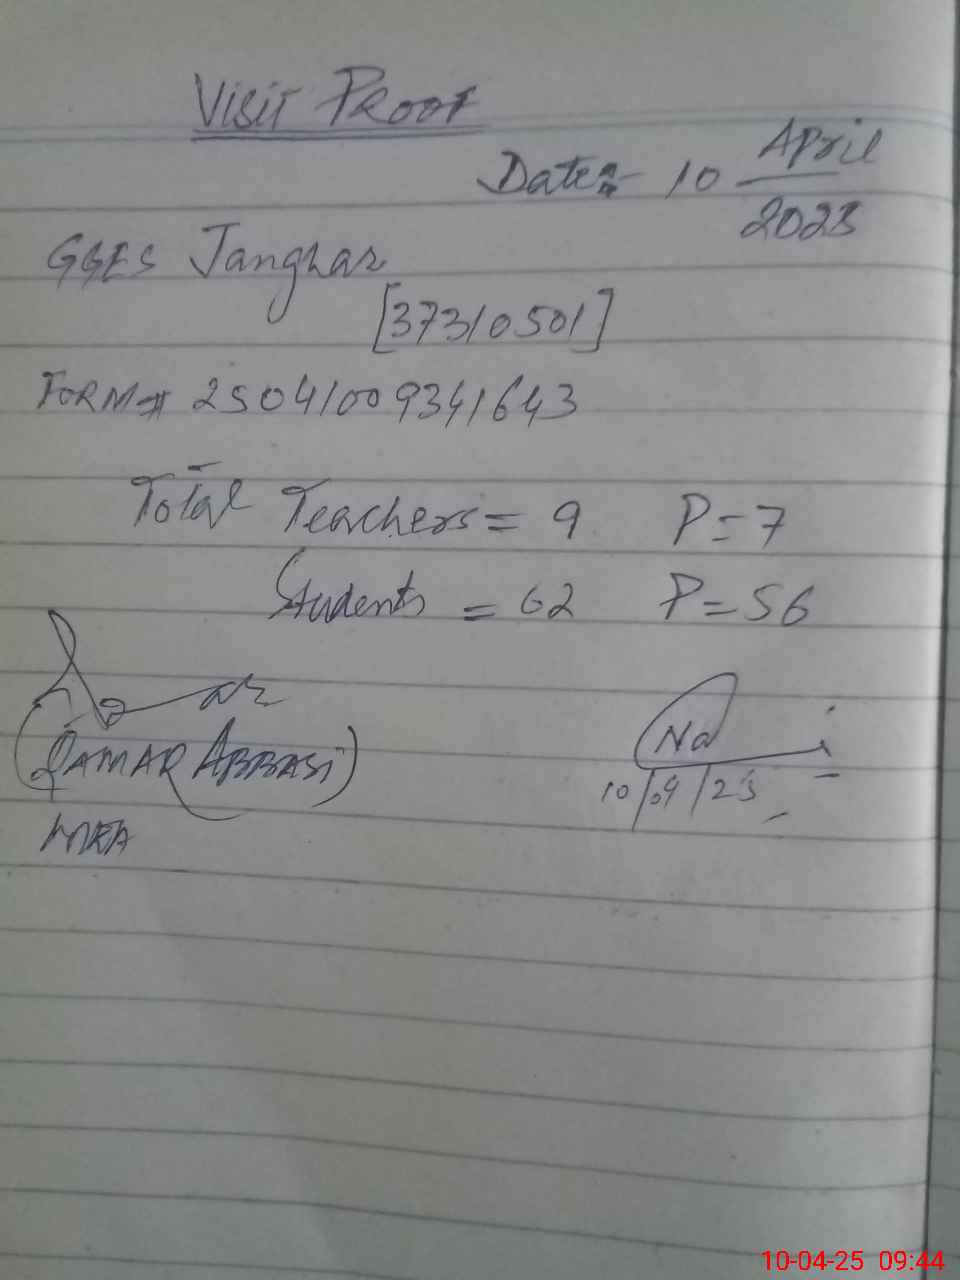 Visit Proof
Date:- 10 April
2023
GGES Janghar
[37310501]
FORM# 25041009341643
Total Teachers = 9 P=7
Students = 62 P=56
(QAMAR ABBASI)
MEA
10/04/23
10-04-25 09:44